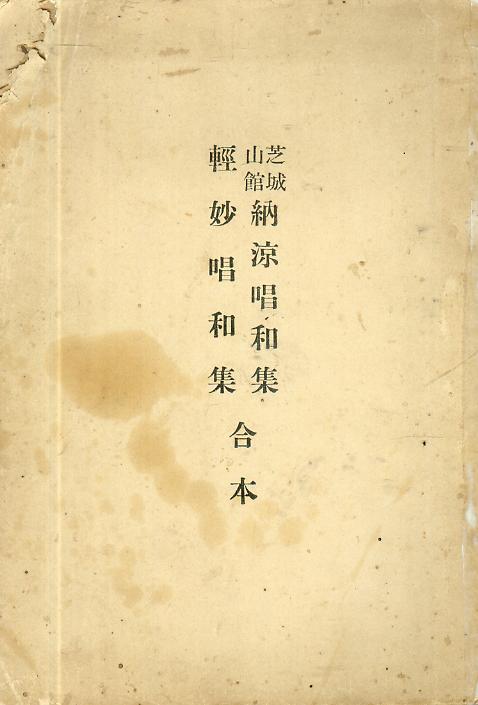 芝城
山館
納涼唱和集
輕妙唱和集
合本